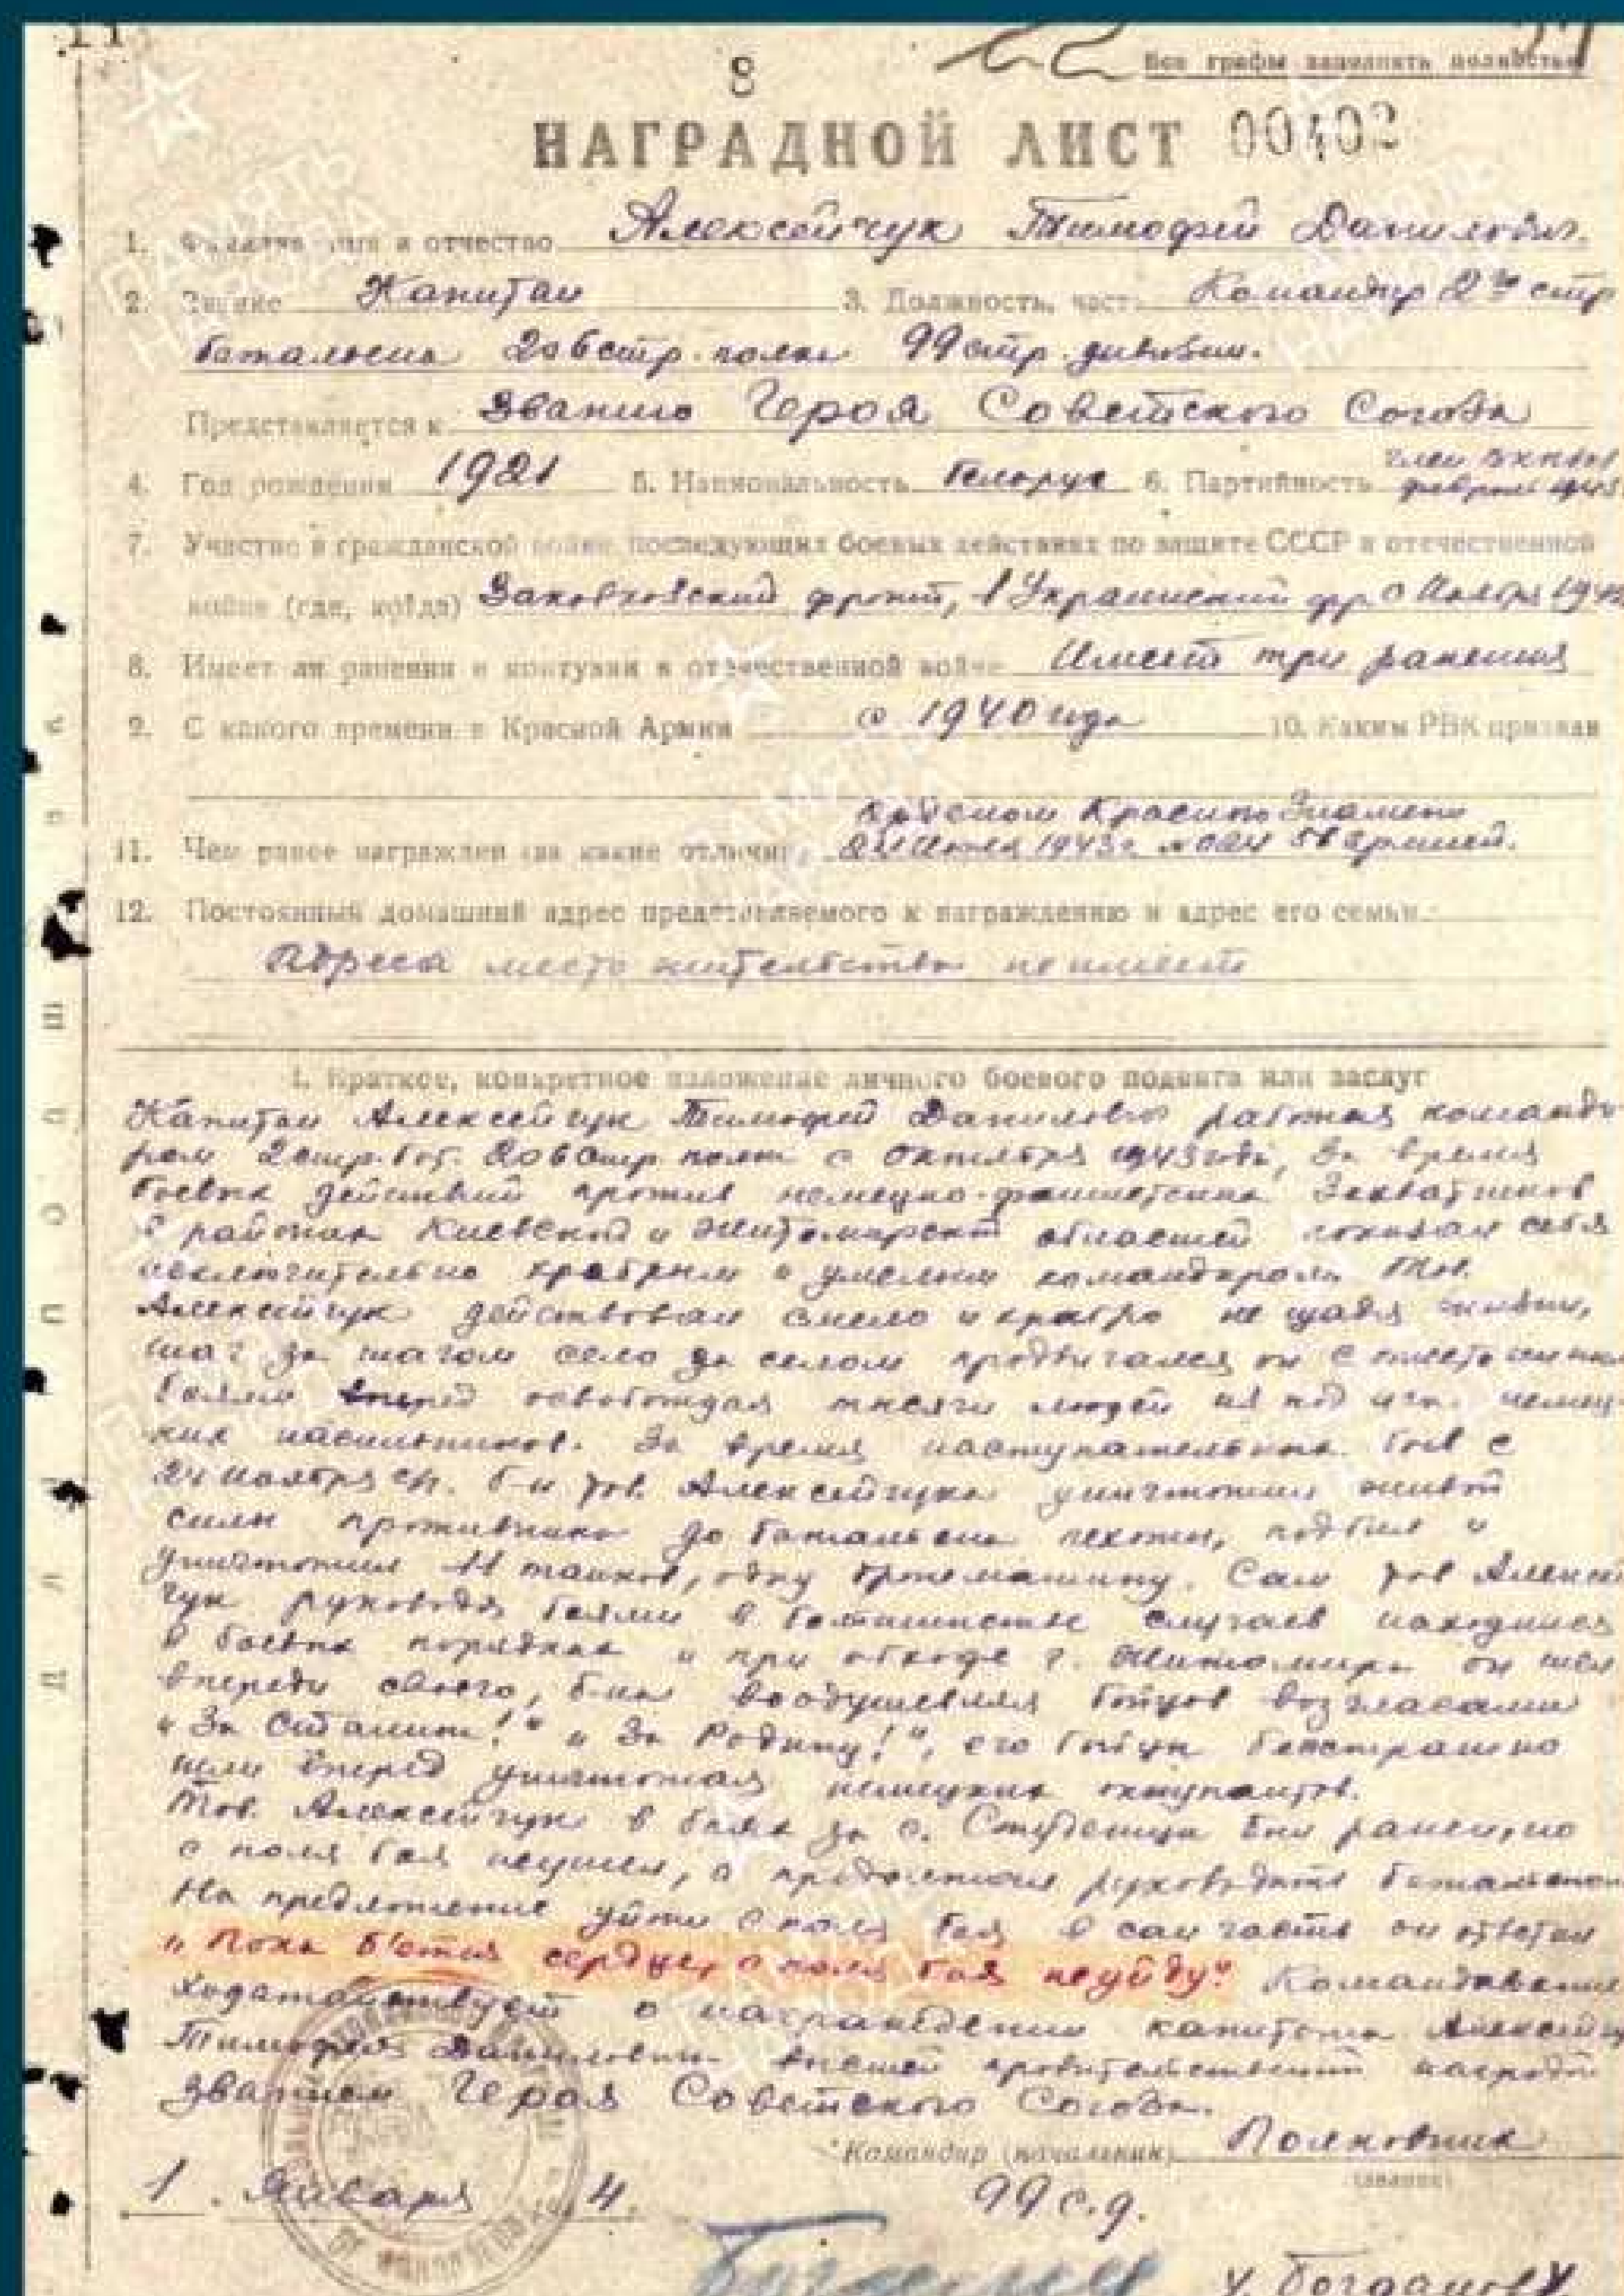 8
Все графы заполнять полностью
НАГРАДНОЙ ЛИСТ 00402
1. Фамилия имя и отчество Алексейчук Тимофей Данилович
2. Звание Капитан 3. Должность, часть Командир 2го стр
батальона 206 стр. полка 99 стр. дивизии.
Представляется к Званию Героя Советского Союза
4. Год рождения 1921 5. Национальность белорус 6. Партийность член ВКП(б)
7. Участие в гражданской войне, последующих боевых действиях по защите СССР и отечественной
войне (где, когда) Закавказский фронт, 1 Украинский фр.
8. Имеет ли ранения и контузии в отечественной войне Имеет три ранения
9. С какого времени в Красной Армии с 1940 года 10. Каким РВК призван
орденом Красного Знамени
11. Чем ранее награжден (за какие отличия) 1943 г. 56 армией.
12. Постоянный домашний адрес представляемого к награждению и адрес его семьи
Адреса место жительства не имеет
1. Краткое, конкретное изложение личного боевого подвига или заслуг
Капитан Алексейчук Тимофей Данилович работая команди-
ром 2 стр. бат. 206 стр. полка с октября 1943 года, за время
боевых действий против немецко-фашистских захватчиков
в районах Киевской и Житомирской областей показал себя
исключительно храбрым и умелым командиром. Тов.
Алексейчук действовал смело и храбро не щадя жизни,
шаг за шагом село за селом продвигался он с
боями вперед освобождая тысячи людей из под ига немец-
ких насильников. За время наступательных боев с
24 ноября б-н тов. Алексейчука уничтожил живой
силы противника до батальона пехоты, подбил и
уничтожил 11 танков, одну бронемашину. Сам тов Алексей
чук руководя боями в большинстве случаев находился
в боевых порядках и при обходе г. Житомира он шел
впереди своего, б-на воодушевляя бойцов возгласами
"За Сталина!" "За Родину!", его бойцы бесстрашно
шли вперед уничтожая немецких оккупантов.
Тов. Алексейчук в боях за с. Студеница был ранен, но
с поля боя неушел, а продолжал руководить батальоном
На предложение уйти с поля боя в сан часть он ответил
"Пока бьется сердце, с поля боя неуйду." Командование
Ходатайствует о награждении капитана Алексейч
Тимофея Даниловича высшей правительственной награды
званием Героя Советского Союза.
Командир (начальник) Полковник
(звание)
1 Января 4. 99 с.д.
/Богданов/